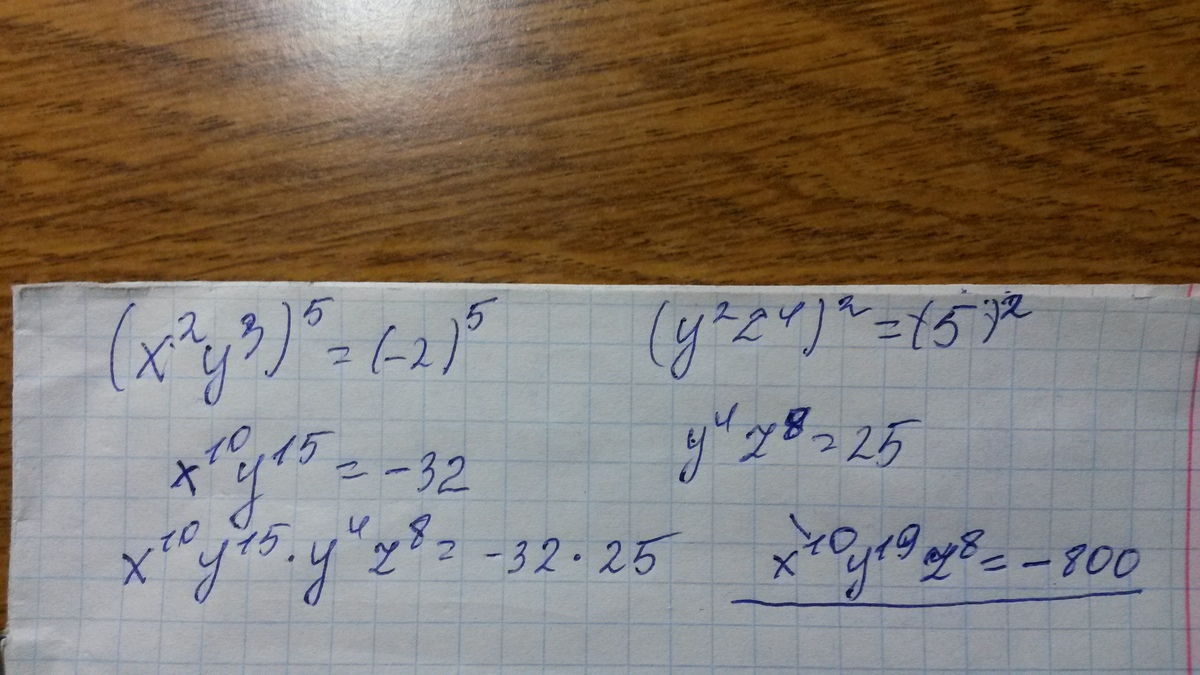 (x²y³)⁵ = (-2)⁵ (y²z⁴)² = (5)²
x¹⁰y¹⁵ = -32 y⁴z⁸ = 25
x¹⁰y¹⁵ · y⁴z⁸ = -32 · 25 x¹⁰y¹⁹z⁸ = -800